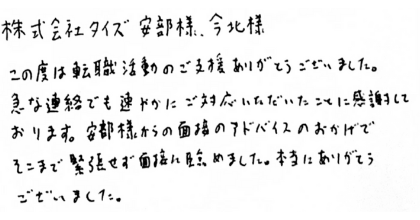 株式会社タイズ 安部様、今北様
この度は転職活動のご支援ありがとうございました。
急な連絡でも速やかにご対応いただいたことに感謝して
おります。安部様からの面接のアドバイスのおかげで
そこまで緊張せず面接に臨めました。本当にありがとう
ございました。